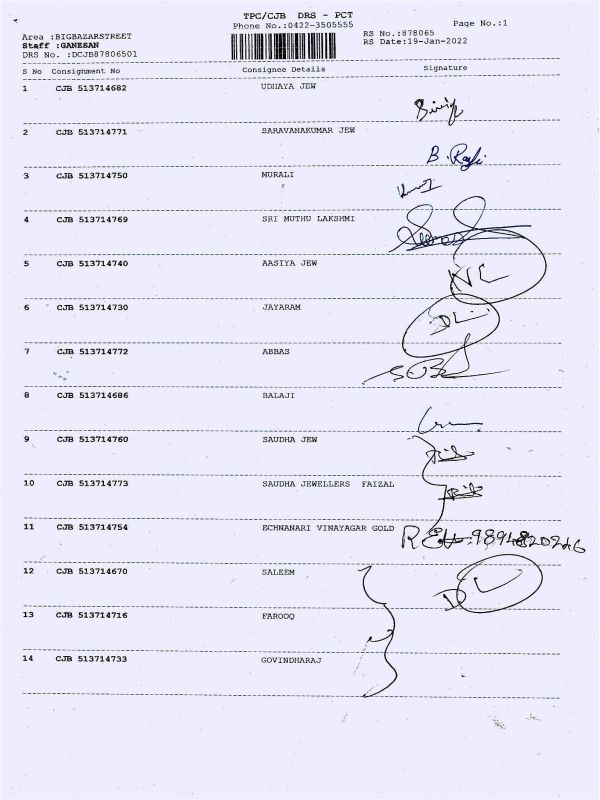 TPC/CJB DRS - PCT
Phone No.:0422-3505555
Page No.:1
Area :BIGBAZARSTREET
RS No.:878065
Staff :GANESAN
RS Date:19-Jan-2022
DRS No. :DCJB87806501
S No Consignment No Consignee Details Signature
1 CJB 513714682 UDHAYA JEW
2 CJB 513714771 SARAVANAKUMAR JEW
B. Rafi
3 CJB 513714750 MURALI
4 CJB 513714769 SRI MUTHU LAKSHMI
5 CJB 513714740 AASIYA JEW
NC
6 CJB 513714730 JAYARAM
DL
7 CJB 513714772 ABBAS
8 CJB 513714686 BALAJI
9 CJB 513714760 SAUDHA JEW
10 CJB 513714773 SAUDHA JEWELLERS FAIZAL
11 CJB 513714754 ECHNANARI VINAYAGAR GOLD
12 CJB 513714670 SALEEM
DL
13 CJB 513714716 FAROOQ
14 CJB 513714733 GOVINDHARAJ